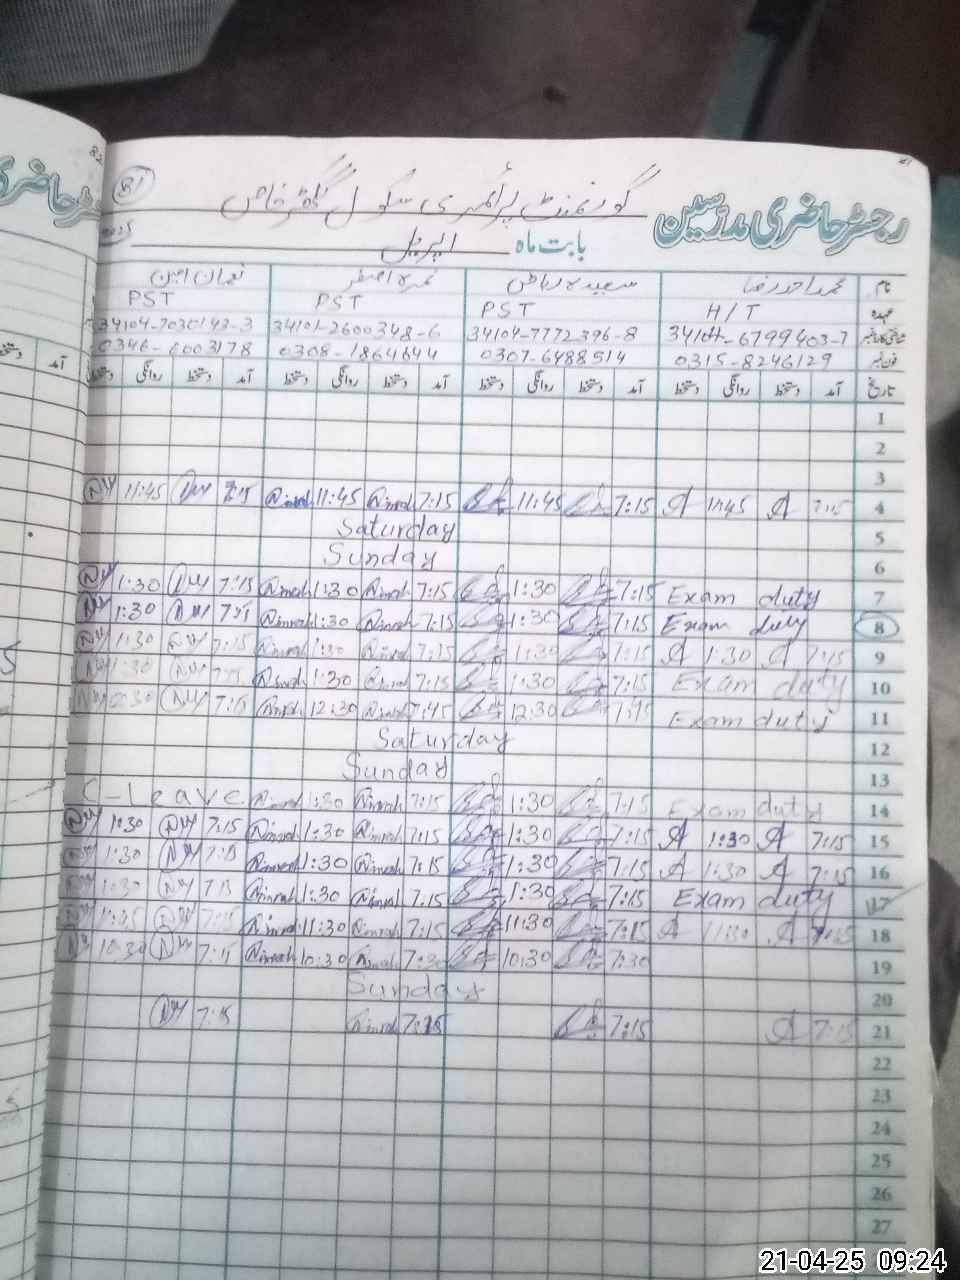 81
گورنمنٹ پرائمری سکول گکھڑ خاص
رجسٹر حاضری مدرسین
بابت ماہ اپریل
نام محمد احمد رضا سعیدہ ریاض نمرہ اصغر نعمان امین
عہدہ H/T PST PST PST
34104-6799403-7 34104-7772396-8 34101-2600348-6 34104-7030143-3
فون نمبر 0315-8246129 0307-6488514 0308-1864644 0346-6003178
تاریخ آمد دستخط روانگی دستخط آمد دستخط روانگی دستخط آمد دستخط روانگی دستخط آمد دستخط روانگی دستخط
1
2
3
11:45 7:15 Nimrah 11:45 Nimrah 7:15 11:45 7:15 11:45 7:15 4
Saturday 5
Sunday 6
1:30 7:15 Nimrah 1:30 Nimrah 7:15 1:30 7:15 Exam duty 7
1:30 7:15 Nimrah 1:30 Nimrah 7:15 1:30 7:15 Exam duty 8
1:30 7:15 Nimrah 1:30 Nimrah 7:15 1:30 7:15 1:30 7:15 9
1:30 7:15 Nimrah 1:30 Nimrah 7:15 1:30 7:15 Exam duty 10
12:30 7:15 Nimrah 12:30 Nimrah 7:45 12:30 7:45 Exam duty 11
Saturday 12
Sunday 13
C-leave Nimrah 1:30 Nimrah 7:15 1:30 7:15 Exam duty 14
1:30 7:15 Nimrah 1:30 Nimrah 7:15 1:30 7:15 1:30 7:15 15
1:30 7:15 Nimrah 1:30 Nimrah 7:15 1:30 7:15 1:30 7:15 16
1:30 7:15 Nimrah 1:30 Nimrah 7:15 1:30 7:15 Exam duty 17
7:15 Nimrah 11:30 Nimrah 7:15 11:30 7:15 11:30 7:15 18
10:30 7:15 Nimrah 10:30 Nimrah 7:30 10:30 7:30 19
Sunday 20
7:15 Nimrah 7:15 7:15 7:15 21
22
23
24
25
26
27
21-04-25 09:24